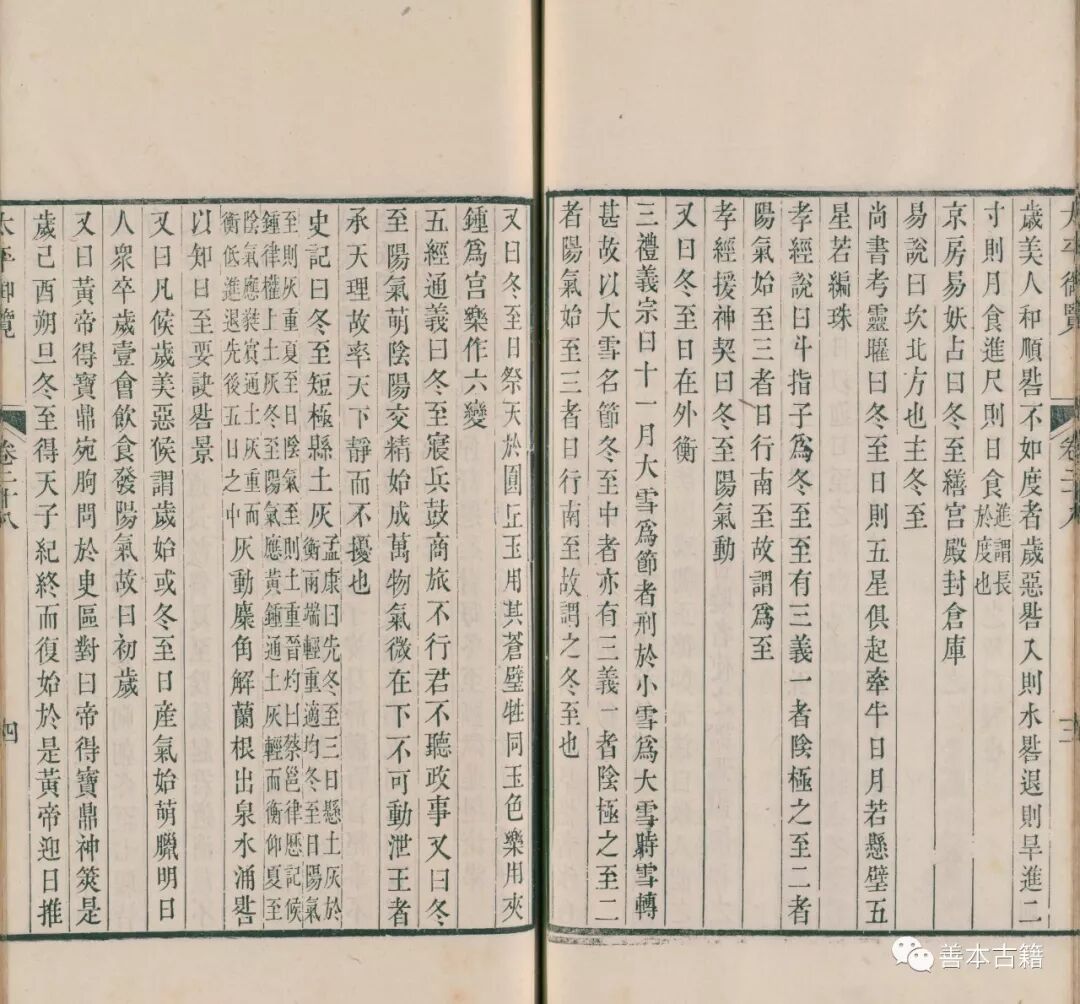 太平御覽
卷二十八
三
歲美人和順晷不如度者歲惡晷入則水晷退則旱進二
寸則月食進尺則日食進謂長於度也
京房易妖占曰冬至繕宮殿封倉庫
易說曰坎北方也主冬至
尚書考靈曜曰冬至日則五星俱起牽牛日月若懸璧五
星若編珠
孝經說曰斗指子爲冬至至有三義一者陰極之至二者
陽氣始至三者日行南至故謂爲至
孝經援神契曰冬至陽氣動
又曰冬至日在外衡
三禮義宗曰十一月大雪爲節者刑於小雪爲大雪時雪轉
甚故以大雪名節冬至中者亦有三義一者陰極之至二
者陽氣始至三者日行南至故謂之冬至也
又曰冬至日祭天於圓丘玉用其蒼璧牲同玉色樂用夾
鍾爲宮樂作六變
五經通義曰冬至寢兵鼓商旅不行君不聽政事又曰冬
至陽氣萌陰陽交精始成萬物氣微在下不可動泄王者
承天理故率天下靜而不擾也
史記曰冬至短極縣土灰孟康曰先冬至三日懸土灰於衡兩端輕重適均冬至日陽氣
至則灰重夏至日陰氣至則土重晉灼曰蔡邕律歷記候鍾律權土灰冬至陽氣應黃鍾通土灰輕而衡仰夏至
陰氣應蕤賓通土灰重而衡低進退先後五日之中灰動麋角解蘭根出泉水涌晷
以知日至要訣晷景
又曰凡候歲美惡候謂歲始或冬至日産氣始萌臘明日
人衆卒歲壹會飲食發陽氣故曰初歲
又曰黃帝得寶鼎宛朐問於史區對曰帝得寶鼎神筴是
歲己酉朔旦冬至得天子紀終而復始於是黃帝迎日推
太平御覽
卷二十八
四
善本古籍